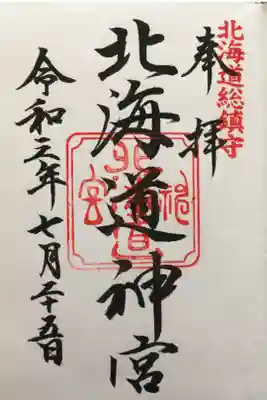 北海道総鎮守
奉拝
北海道神宮
北海道神宮
令和三年七月二十五日